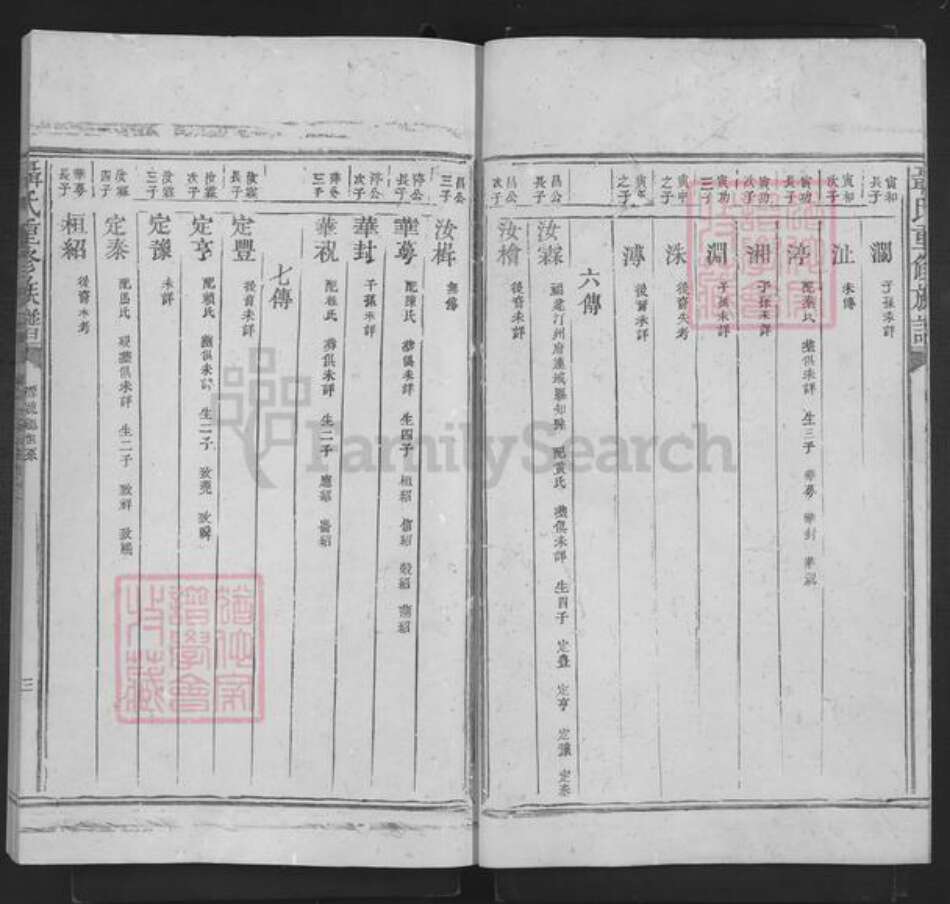 寅和長子 瀾 子孫未詳
寅和次子 沚 未傳
寅功長子 渟 配 氏 葬俱未詳 生三子 華萼 華封 華祝
寅功次子 湘 子孫未詳
寅功三子 淵 子孫未詳
寅 次子 洙 後裔未考
寅 之子 溥 後裔未詳
六傳
昌公長子 汝霖 福建汀州府連城縣知縣 配黃氏 葬俱未詳 生四子 定豐 定亨 定豫 定泰
昌公次子 汝檜 後裔未詳
昌公三子 汝 無傳
渟公長子 華萼 配陳氏 葬俱未詳 生四子 桓紹 信紹 毅紹 肅紹
渟公次子 華封 子孫未詳
渟公三子 華祝 配 氏 葬俱未詳 生二子 應紹 紹
七傳
汝霖長子 定豐 後裔未詳
汝霖次子 定亨 配賴氏 葬俱未詳 生二子 致堯 致舜
汝霖三子 定豫 未詳
汝霖四子 定泰 配 氏 葬俱未詳 生二子 致祥 致熙
華萼長子 桓紹 後裔未考
聶氏重修族譜
三
聶氏重修族譜
FamilySearch